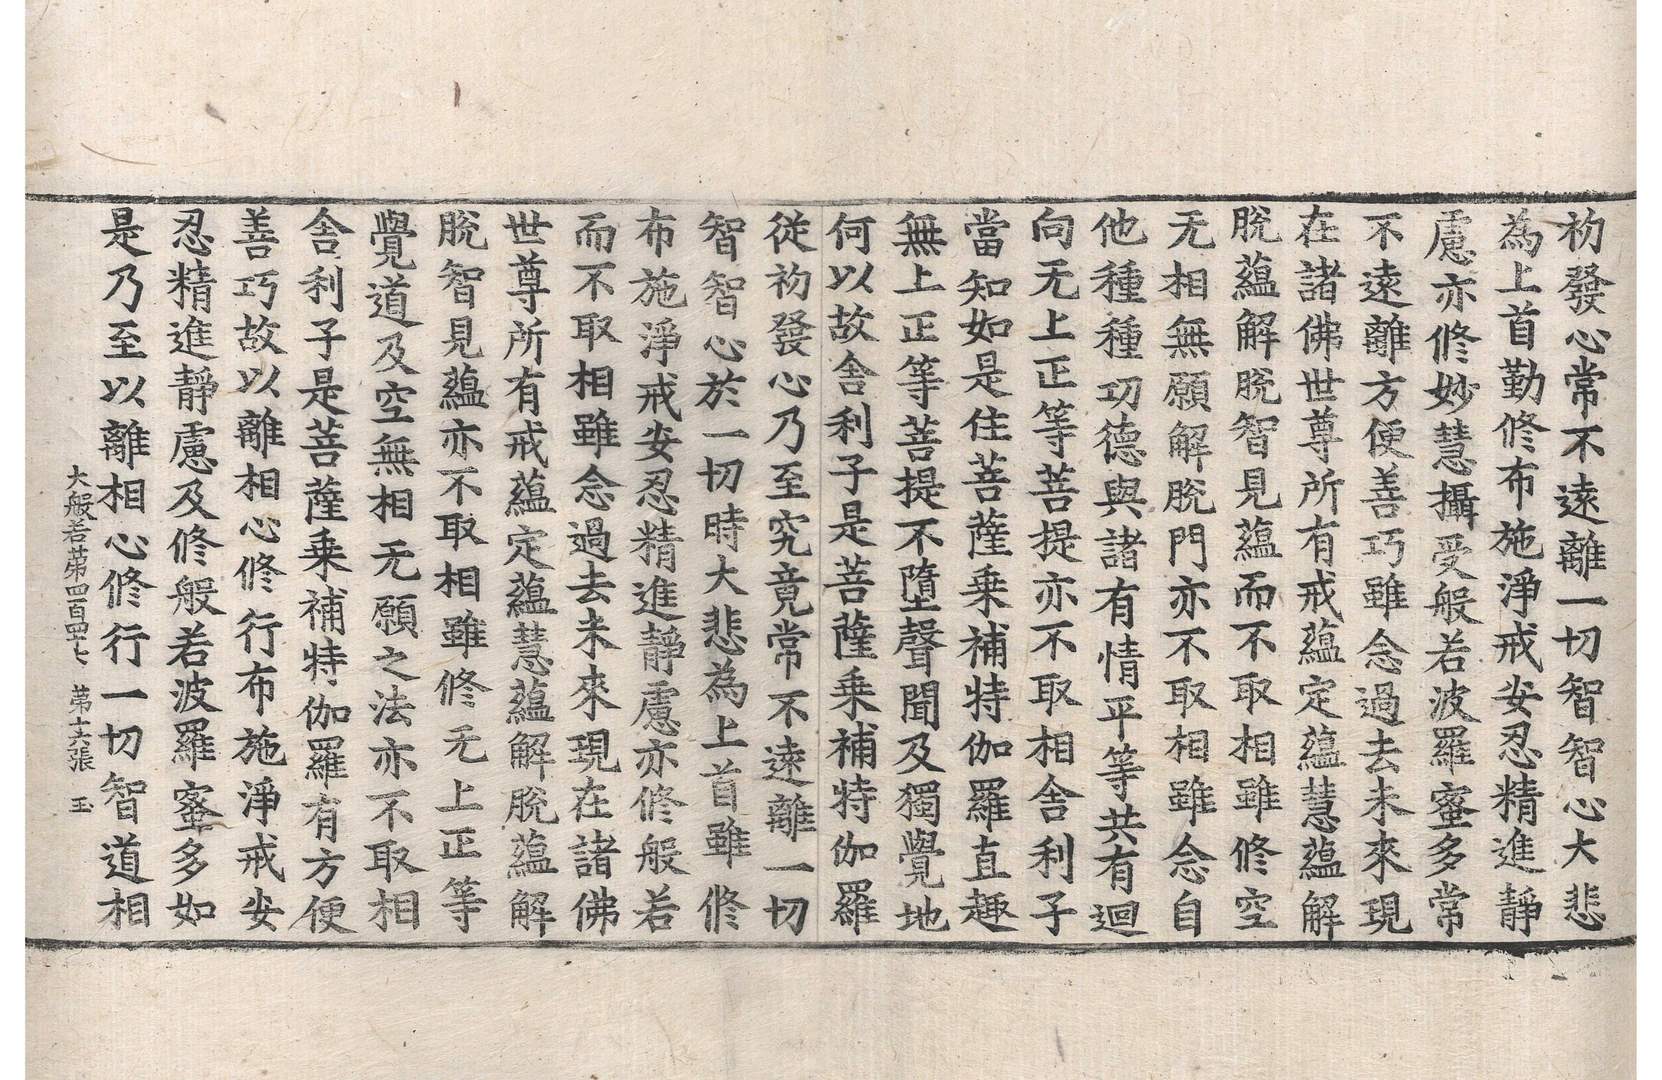 初發心常不遠離一切智智心大悲
為上首勤修布施淨戒安忍精進靜
慮亦修妙慧攝受般若波羅蜜多常
不遠離方便善巧雖念過去未來現
在諸佛世尊所有戒蘊定蘊慧蘊解
脫蘊解脫智見蘊而不取相雖修空
无相無願解脫門亦不取相雖念自
他種種功德與諸有情平等共有迴
向无上正等菩提亦不取相舍利子
當知如是住菩薩乘補特伽羅直趣
無上正等菩提不墮聲聞及獨覺地
何以故舍利子是菩薩乘補特伽羅
從初發心乃至究竟常不遠離一切
智智心於一切時大悲為上首雖修
布施淨戒安忍精進靜慮亦修般若
而不取相雖念過去未來現在諸佛
世尊所有戒蘊定蘊慧蘊解脫蘊解
脫智見蘊亦不取相雖修无上正等
覺道及空無相无願之法亦不取相
舍利子是菩薩乘補特伽羅有方便
善巧故以離相心修行布施淨戒安
忍精進靜慮及修般若波羅蜜多如
是乃至以離相心修行一切智道相
大般若第四百四七 第十六張 玉